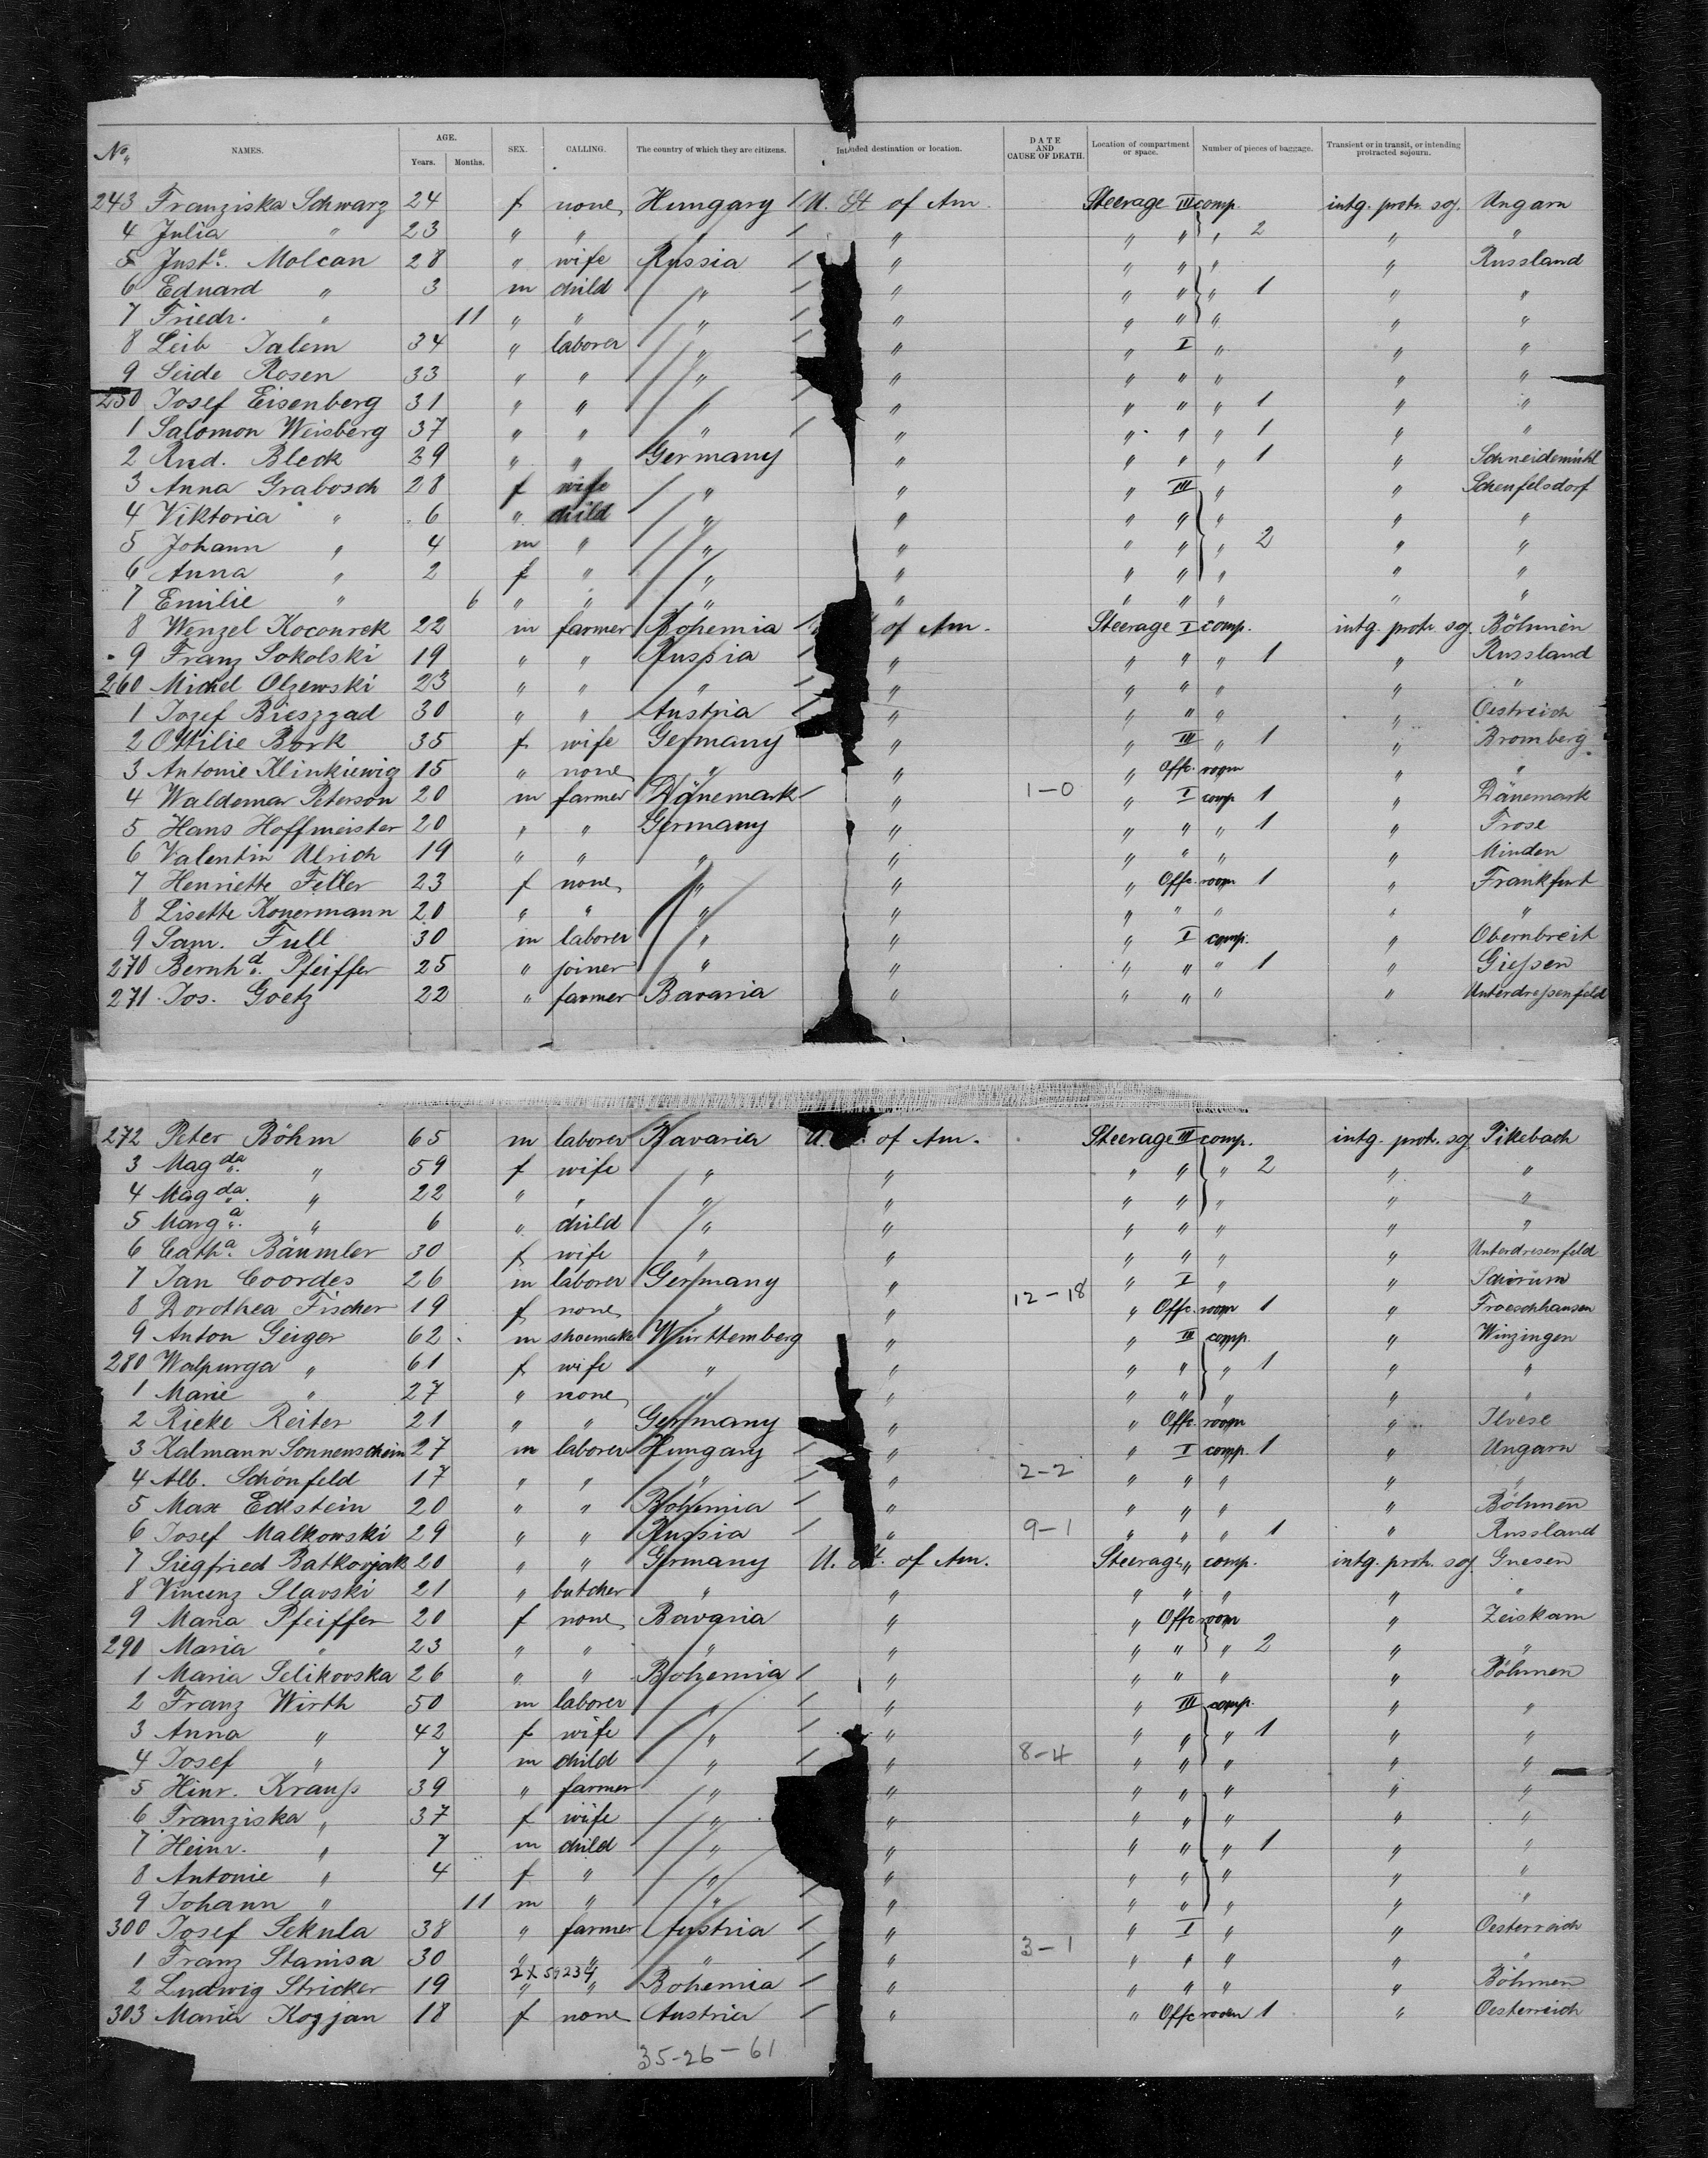 No. NAMES. AGE. Years. Months. SEX. CALLING. The country of which they are citizens. Intended destination or location. DATE AND CAUSE OF DEATH. Location of compartment or space. Number of pieces of baggage. Transient or in transit, or intending protracted sojourn.
243 Franziska Schwarz 24 f none Hungary U. St of Am. Steerage III comp. intg. protr. soj. Ungarn
4 Julia " 23 " " " " " " " 2 " "
5 Justa. Molcan 28 " wife Russia " " " " " Russland
6 Eduard " 3 m child " " " " " 1 " "
7 Friedr. " 11 " " " " " " " " "
8 Leib Talem 34 " laborer " " " I " " "
9 Seide Rosen 33 " " " " " " " " "
250 Josef Eisenberg 31 " " " " " " " 1 " "
1 Salomon Weisberg 37 " " " " " " " 1 " "
2 Rud. Bleck 29 " " Germany " " " " 1 " Schneidemühl
3 Anna Grabosch 28 f wife " " " III " " Schenfelsdorf
4 Viktoria " 6 " child " " " " " " "
5 Johann " 4 m " " " " " " 2 " "
6 Anna " 2 f " " " " " " " "
7 Emilie " 6 " " " " " " " " "
8 Wenzel Kocourek 22 m farmer Bohemia of Am. Steerage I comp. intg. protr. soj. Böhmen
9 Franz Sokolski 19 " " Russia " " " " 1 " Russland
260 Michel Olzewski 23 " " " " " " " " "
1 Jozef Bieszzad 30 " " Austria " " " " " Oestreich
2 Ottilie Bork 35 f wife Germany " " III " 1 " Bromberg
3 Antonie Klinkiewig 15 " none " " " Offc. room " "
4 Waldemar Peterson 20 m farmer Dänemark " 1-0 " I comp 1 " Dänemark
5 Hans Hoffmeister 20 " " Germany " " " " 1 " Frose
6 Valentin Ulrich 19 " " " " " " " " Minden
7 Henriette Feller 23 f none " " " Offc. room 1 " Frankfurt
8 Lisette Konermann 20 " " " " " " " " "
9 Sam. Full 30 m laborer " " " I comp. " Obernbreit
270 Bernhd. Pfeiffer 25 " joiner " " " " " 1 " Gießen
271 Jos. Goetz 22 " farmer Bavaria " " " " " Unterdreßenfeld
272 Peter Böhm 65 m laborer Bavaria U. of Am. Steerage III comp. intg. protr. soj. Pikebach
3 Magda. " 59 f wife " " " " " 2 " "
4 Magda. " 22 " " " " " " " " "
5 Marga. " 6 " child " " " " " " "
6 Catha. Bäumler 30 f wife " " " " " " Unterdresenfeld
7 Jan Coordes 26 m laborer Germany " " I " " Schirum
8 Dorothea Fischer 19 f none " " 12-18 " Offc. room 1 " Froeschhausen
9 Anton Geiger 62 m shoemake Württemberg " " III comp. " Winzingen
280 Walpurga " 61 f wife " " " " " 1 " "
1 Marie " 27 " none " " " " " " "
2 Rieke Reiter 21 " " Germany " " Offc. room " Ilvese
3 Kalmann Sonnenschein 27 m laborer Hungary " " I comp. 1 " Ungarn
4 Alb. Schönfeld 17 " " " " 2-2 " " " " "
5 Max Eckstein 20 " " Bohemia " " " " " Böhmen
6 Josef Malkowski 29 " " Russia " 9-1 " " " 1 " Russland
7 Siegfried Batkovjak 20 " " Germany U. St. of Am. Steerage " comp. intg. protr. soj. Gnesen
8 Vincenz Slavski 21 " butcher " " " " " " "
9 Maria Pfeiffer 20 f none Bavaria " " Offc room " Zeiskam
290 Maria " 23 " " " " " " " 2 " "
1 Maria Selikovska 26 " " Bohemia " " " " " Böhmen
2 Franz Wirth 50 m laborer " " " III comp. " "
3 Anna " 42 f wife " " " " " 1 " "
4 Josef " 7 m child " " 8-4 " " " " "
5 Hinr. Krauß 39 " farmer " " " " " " "
6 Franziska " 37 f wife " " " " " " "
7 Heinr. " 7 m child " " " " " 1 " "
8 Antonie " 4 f " " " " " " " "
9 Johann " 11 m " " " " " " " "
300 Josef Sekula 38 " farmer Austria " " I " " Oesterreich
1 Franz Stanisa 30 " " " " 3-1 " " " " "
2 Ludwig Stricker 19 " " Bohemia " " " " " Böhmen
303 Maria Kozjan 18 f none Austria " " Offc room 1 " Oesterreich
35-26-61